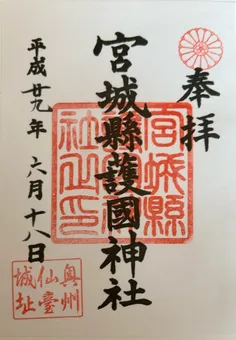 奉拝
宮城縣
護國神
社之印
宮城縣護國神社
平成廿九年 六月十八日
奥州
仙臺
城址